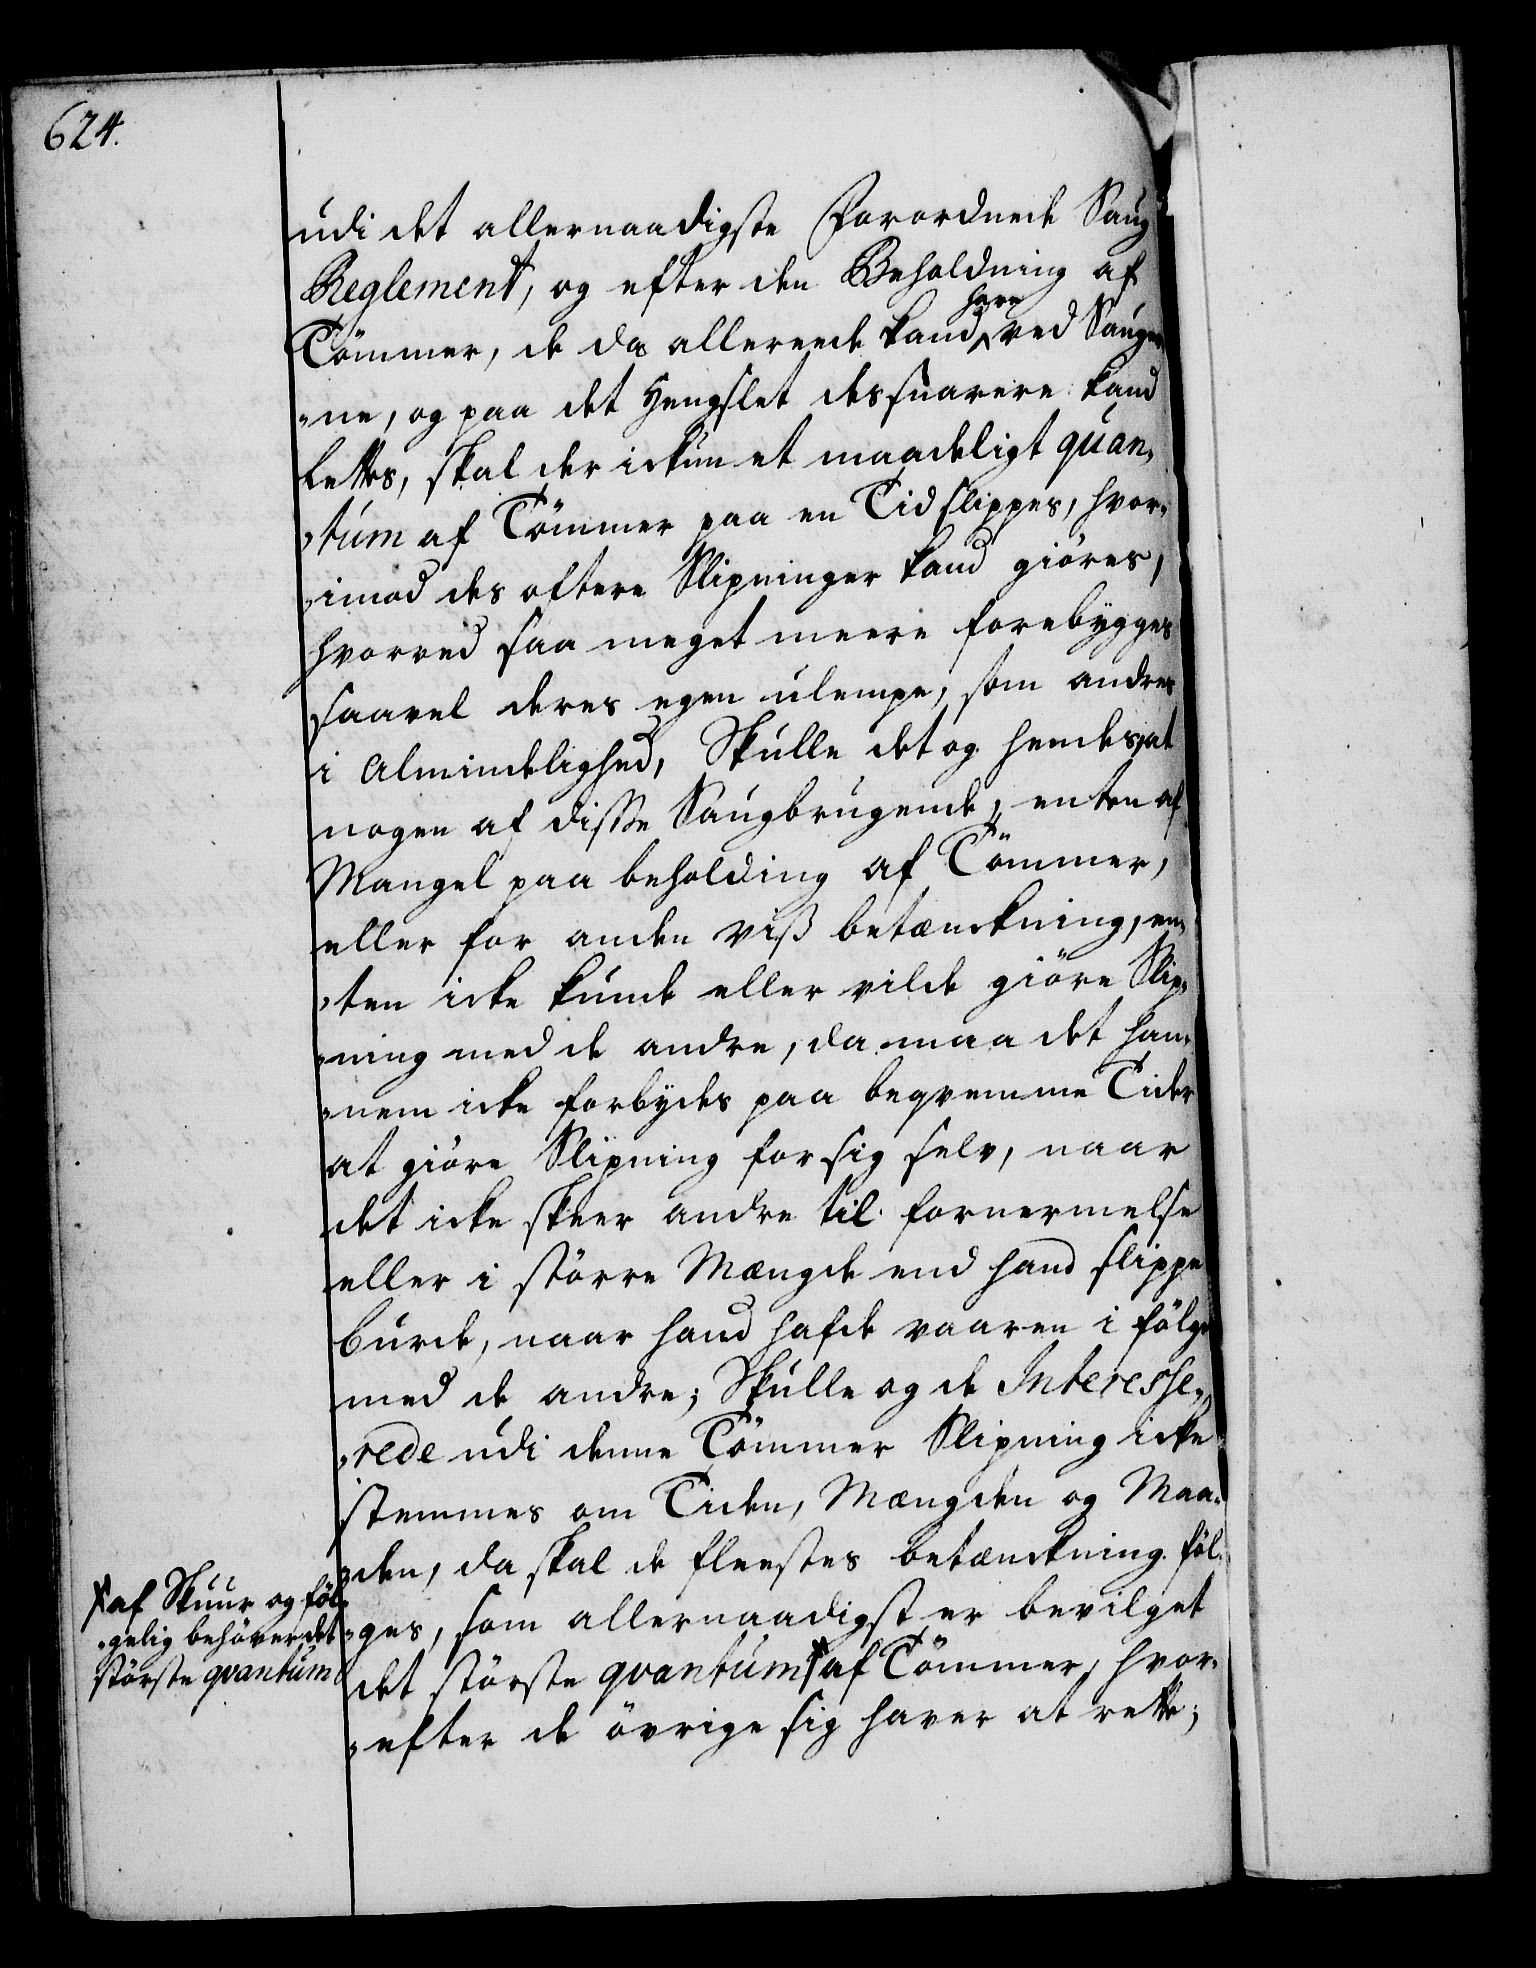 624.
udi det allernaadigste Forordnede Saug
Reglement, og efter den Beholdning af
Tömmer, de da allereede kand have ved Sauger
-ne, og paa det Hengslet dessnarere kand
lettes, skal der ickun et maadeligt quan-
-tum af Tömmer paa en Tid slippes, hvor-
-imod des oftere Slipninger kand giöres,
hvorved saa meget meere forebygges
saavel deres egen ulempe, som andres
i Almindelighed, Skulle det og hendes, at
nogen af disse Saugbrugende, enten af
Mangel paa beholding af Tömmer,
eller for anden viß betænckning, en-
-ten icke kunde eller vilde giöre Slip-
-ning med de andre, da maa det han-
-nem icke forbydes paa beqvemme Tider
at giöre Slipning for sig selv, naar
det icke skeer andre til fornermelse
eller i större Mængde end hand slippe
burde, naar hand hafde vaaren i fölge
med de andre; Skulle og de Interesse-
-rede udi denne Tömmer Slipning icke
stemmes om Tiden, Mængden og Maa-
-den, da skal de fleestes betænckning föl-
-ges, som allernaadigst er bevilget
det störste qvantum * af Tömmer, hvor-
-efter de övrige sig haver at rette;
* af Skuur og föl-
-gelig behöver det
störste qvantum